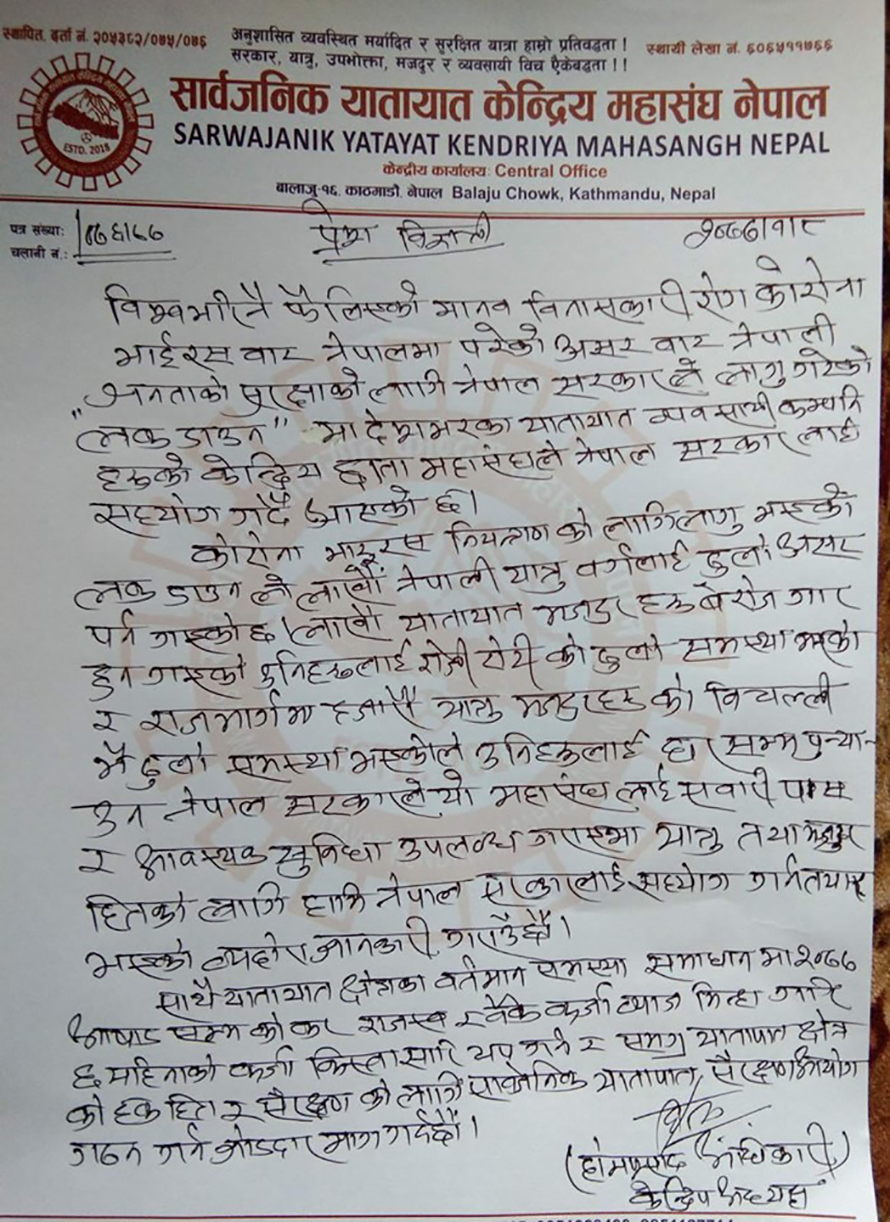 स्थापित, दर्ता नं. २०५३६२/०७५/०७६
अनुशासित व्यवस्थित मर्यादित र सुरक्षित यात्रा हाम्रो प्रतिवद्धता !
सरकार, यात्रु, उपभोक्ता, मजदुर र व्यवसायी विच एैकेबद्धता !!
स्थायी लेखा नं. ६०६५११७६६
ESTD. 2018
सार्वजनिक यातायात केन्द्रिय महासंघ नेपाल
SARWAJANIK YATAYAT KENDRIYA MAHASANGH NEPAL
केन्द्रीय कार्यालयः Central Office
बालाजु-१६, काठमाडौं, नेपाल Balaju Chowk, Kathmandu, Nepal
पत्र संख्याः
चलानी नं.:
प्रेश विज्ञप्ती
२०७७।१।८
विश्वभरी नै फैलिएको मानव विनासकारी रोग कोरोना
भाईरस बाट नेपालमा परेको असर बाट नेपाली
जनताको सुरक्षाको लागि नेपाल सरकारले लागु गरेको
"लक डाउन" मा देशभरका यातायात व्यवसायी कम्पनि
हरुको केन्द्रिय छाता महासंघले नेपाल सरकारलाई
सहयोग गर्दै आएको छ।
कोरोना भाइरस नियन्त्रण को लागि लागु भएको
लक डाउन ले लाखौं नेपाली यात्रु वर्गलाई ठुलो असर
पर्न गएको छ। लाखौं यातायात मजदुर हरु बेरोजगार
हुन गएको उनिहरुलाई रोजी रोटी को ठुलो समस्या भएको
र राजमार्गमा हजारौं यात्रु मजदुरहरु को विचल्ली
भै ठुलो समस्या भएकोले उनिहरुलाई घर सम्म पुर्‍या-
उन नेपाल सरकारले यो महासंघ लाई सवारी पास
र आवस्यक सुविधा उपलब्ध गराएमा यात्रु तथा मजदुर
हितको लागि हामि नेपाल सरकारलाई सहयोग गर्न तयार
भएको व्यहोरा जानकारी गराउँछौं।
साथै यातायात क्षेत्रका वर्तमान समस्या समाधान मा २०७७
आषाढ सम्म को कर राजस्व र बैंक कर्जा व्याज मिन्हा गरि
६ महिनाको कर्जा किस्ता सारि थप गर्न र समग्र यातायात क्षेत्र
को हक हित र संरक्षण को लागि सार्वजनिक यातायात संरक्षण आयोग
गठन गर्न जोडदार माग गर्दछौं।
(होमप्रसाद अधिकारी)
केन्द्रिय अध्यक्ष